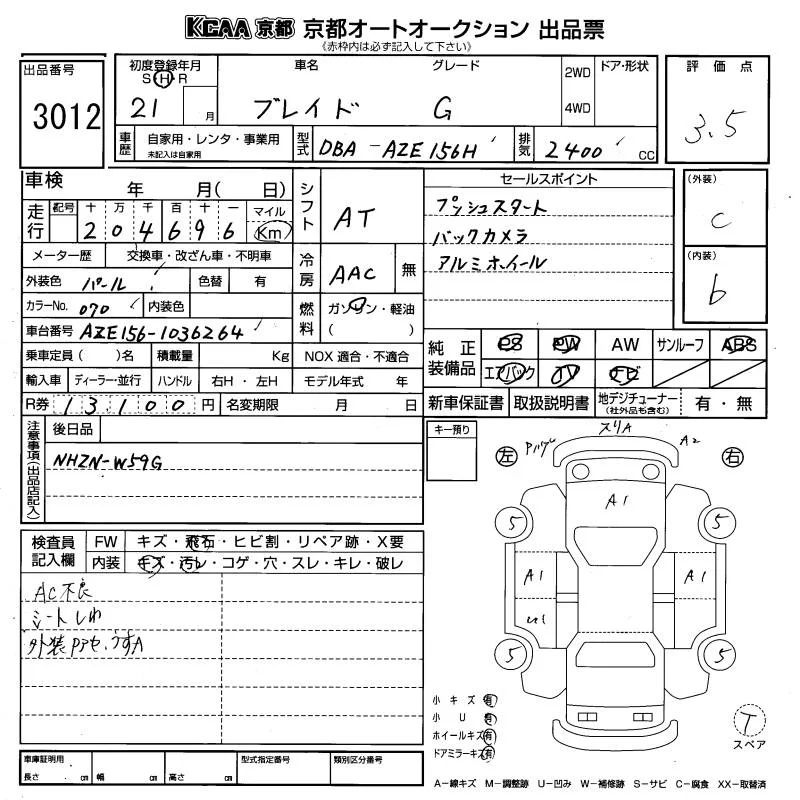 KCAA 京都 京都オートオークション 出品票
《赤枠内は必ず記入して下さい》
出品番号
3012
初度登録年月
S・H・R
21 月
車名
ブレイド
グレード
G
2WD
4WD
ドア・形状
評価点
3.5
車歴
自家用・レンタ・事業用
未記入は自家用
型式
DBA-AZE156H
排気
2400 CC
車検 年 月( 日)
走行
記号 十 万 千 百 十 一 マイル
2 0 4 6 9 6 Km
メーター歴 交換車・改ざん車・不明車
外装色 パール 色替 有
カラーNo. 070 内装色
車台番号 AZE156-1036264
乗車定員( )名 積載量 Kg
輸入車 ディーラー・並行 ハンドル 右H・左H
R券 13,100円 名変期限 月 日
シフト AT
冷房 AAC 無
燃料 ガソリン・軽油
( )
NOX 適合・不適合
モデル年式 年
セールスポイント
プッシュスタート
バックカメラ
アルミホイール
(外装)
C
(内装)
b
純正装備品
PS PW AW サンルーフ ABS
エアバック TV ナビ
新車保証書 取扱説明書 地デジチューナー(社外品も含む) 有・無
注意事項(出品店記入)
後日品
NHZN-W59G
キー預り
左 右
スリA
A2
A1
5 5
A1 A1
5 5
小キズ 有
小U 有
ホイールキズ 有
ドアミラーキズ 有
T
スペア
検査員記入欄
FW キズ・飛石・ヒビ割・リペア跡・X要
内装 キズ・汚レ・コゲ・穴・スレ・キレ・破レ
AC不良
シートしわ
車庫証明用
長さ cm 幅 cm 高さ cm
型式指定番号
類別区分番号
A−線キズ M−調整跡 U−凹み W−補修跡 S−サビ C−腐食 XX−取替済